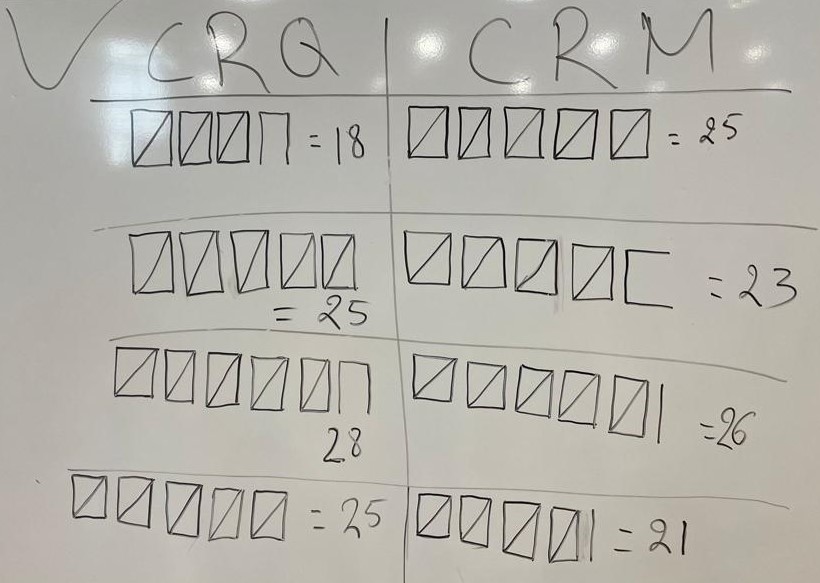 CRQ CRM
= 18 = 25
= 25 = 23
28 =26
= 25 = 21